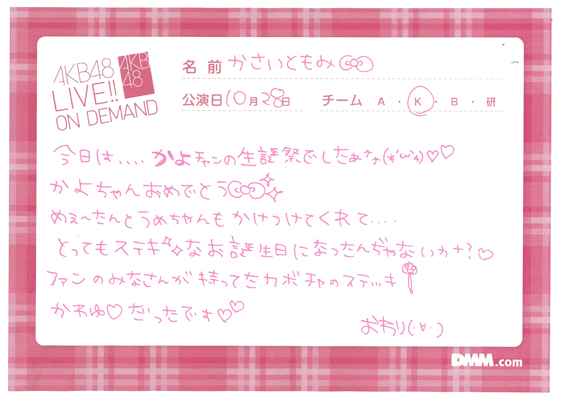 AKB48
LIVE!!
ON DEMAND
AKB
48
名前 かさいともみ
公演日 10月28日 チーム A・K・B・研
今日は....かよチャンの生誕祭でしたぁなぁ(*'ω'*)♡♡
かよちゃんおめでとう
めぇ〜たんとうめちゃんもかけつけてくれて....
とってもステキなお誕生日になったんぢゃないカナ?♡
ファンのみなさんが持ってたカボチャのステッキ
かわゆ♡だったです♡♡
おわり(・∀・)
DMM.com